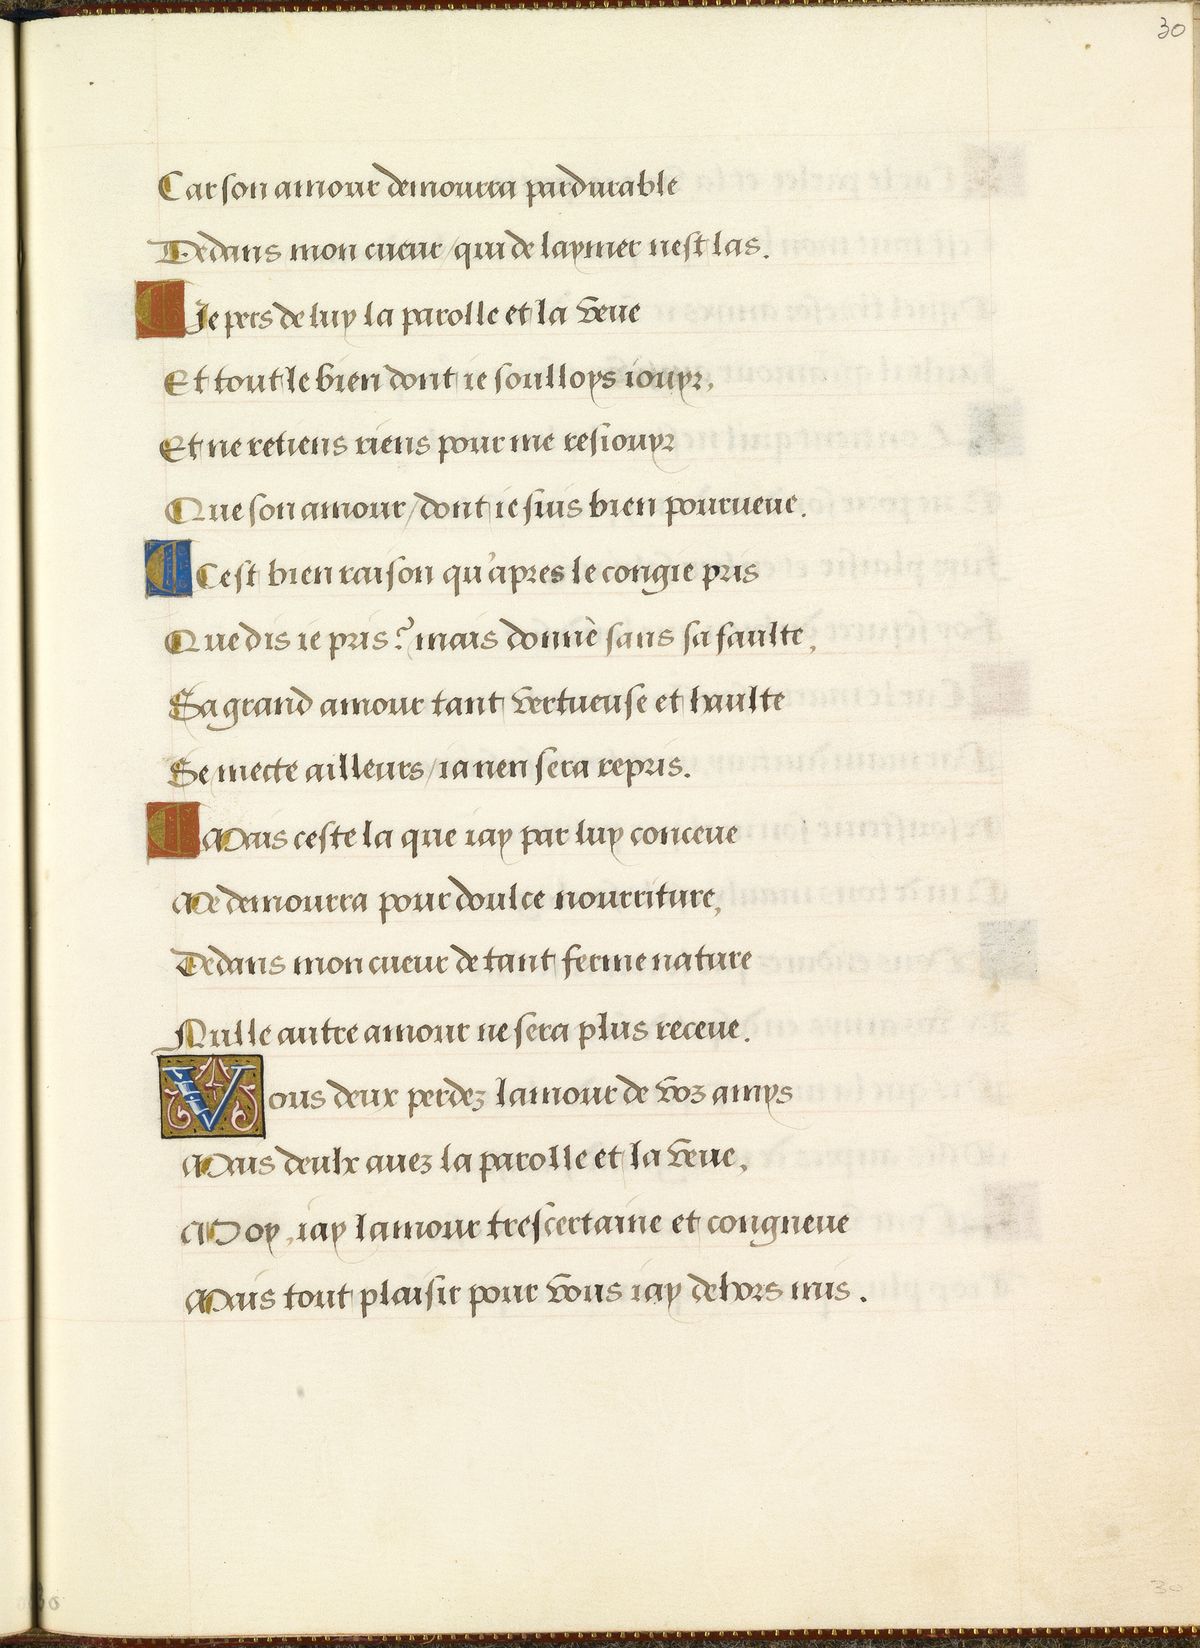 30
Car son amour demourra pardurable
Dedans mon cueur / qui de laymer nest las.
Je pers de luy la parolle et la veue
Et tout le bien dont ie soulloys iouyr,
Et ne retiens riens pour me resiouyr
Que son amour / dont ie suis bien pourueue.
Cest bien raison qu'apres le congie pris
Que dis ie pris? mais donné sans sa faulte,
Sa grand amour tant vertueuse et haulte
Se mecte ailleurs / ia nen sera repris.
Mais ceste la que iay par luy conceue
Me demourra pour doulce nourriture,
Dedans mon cueur de tant ferme nature
Nulle autre amour ne sera plus receue.
Vous deux perdez lamour de voz amys
Mais deulx auez la parolle et la veue,
Moy, iay lamour trescertaine et congneue
Mais tout plaisir pour vous iay dehors mis.
30